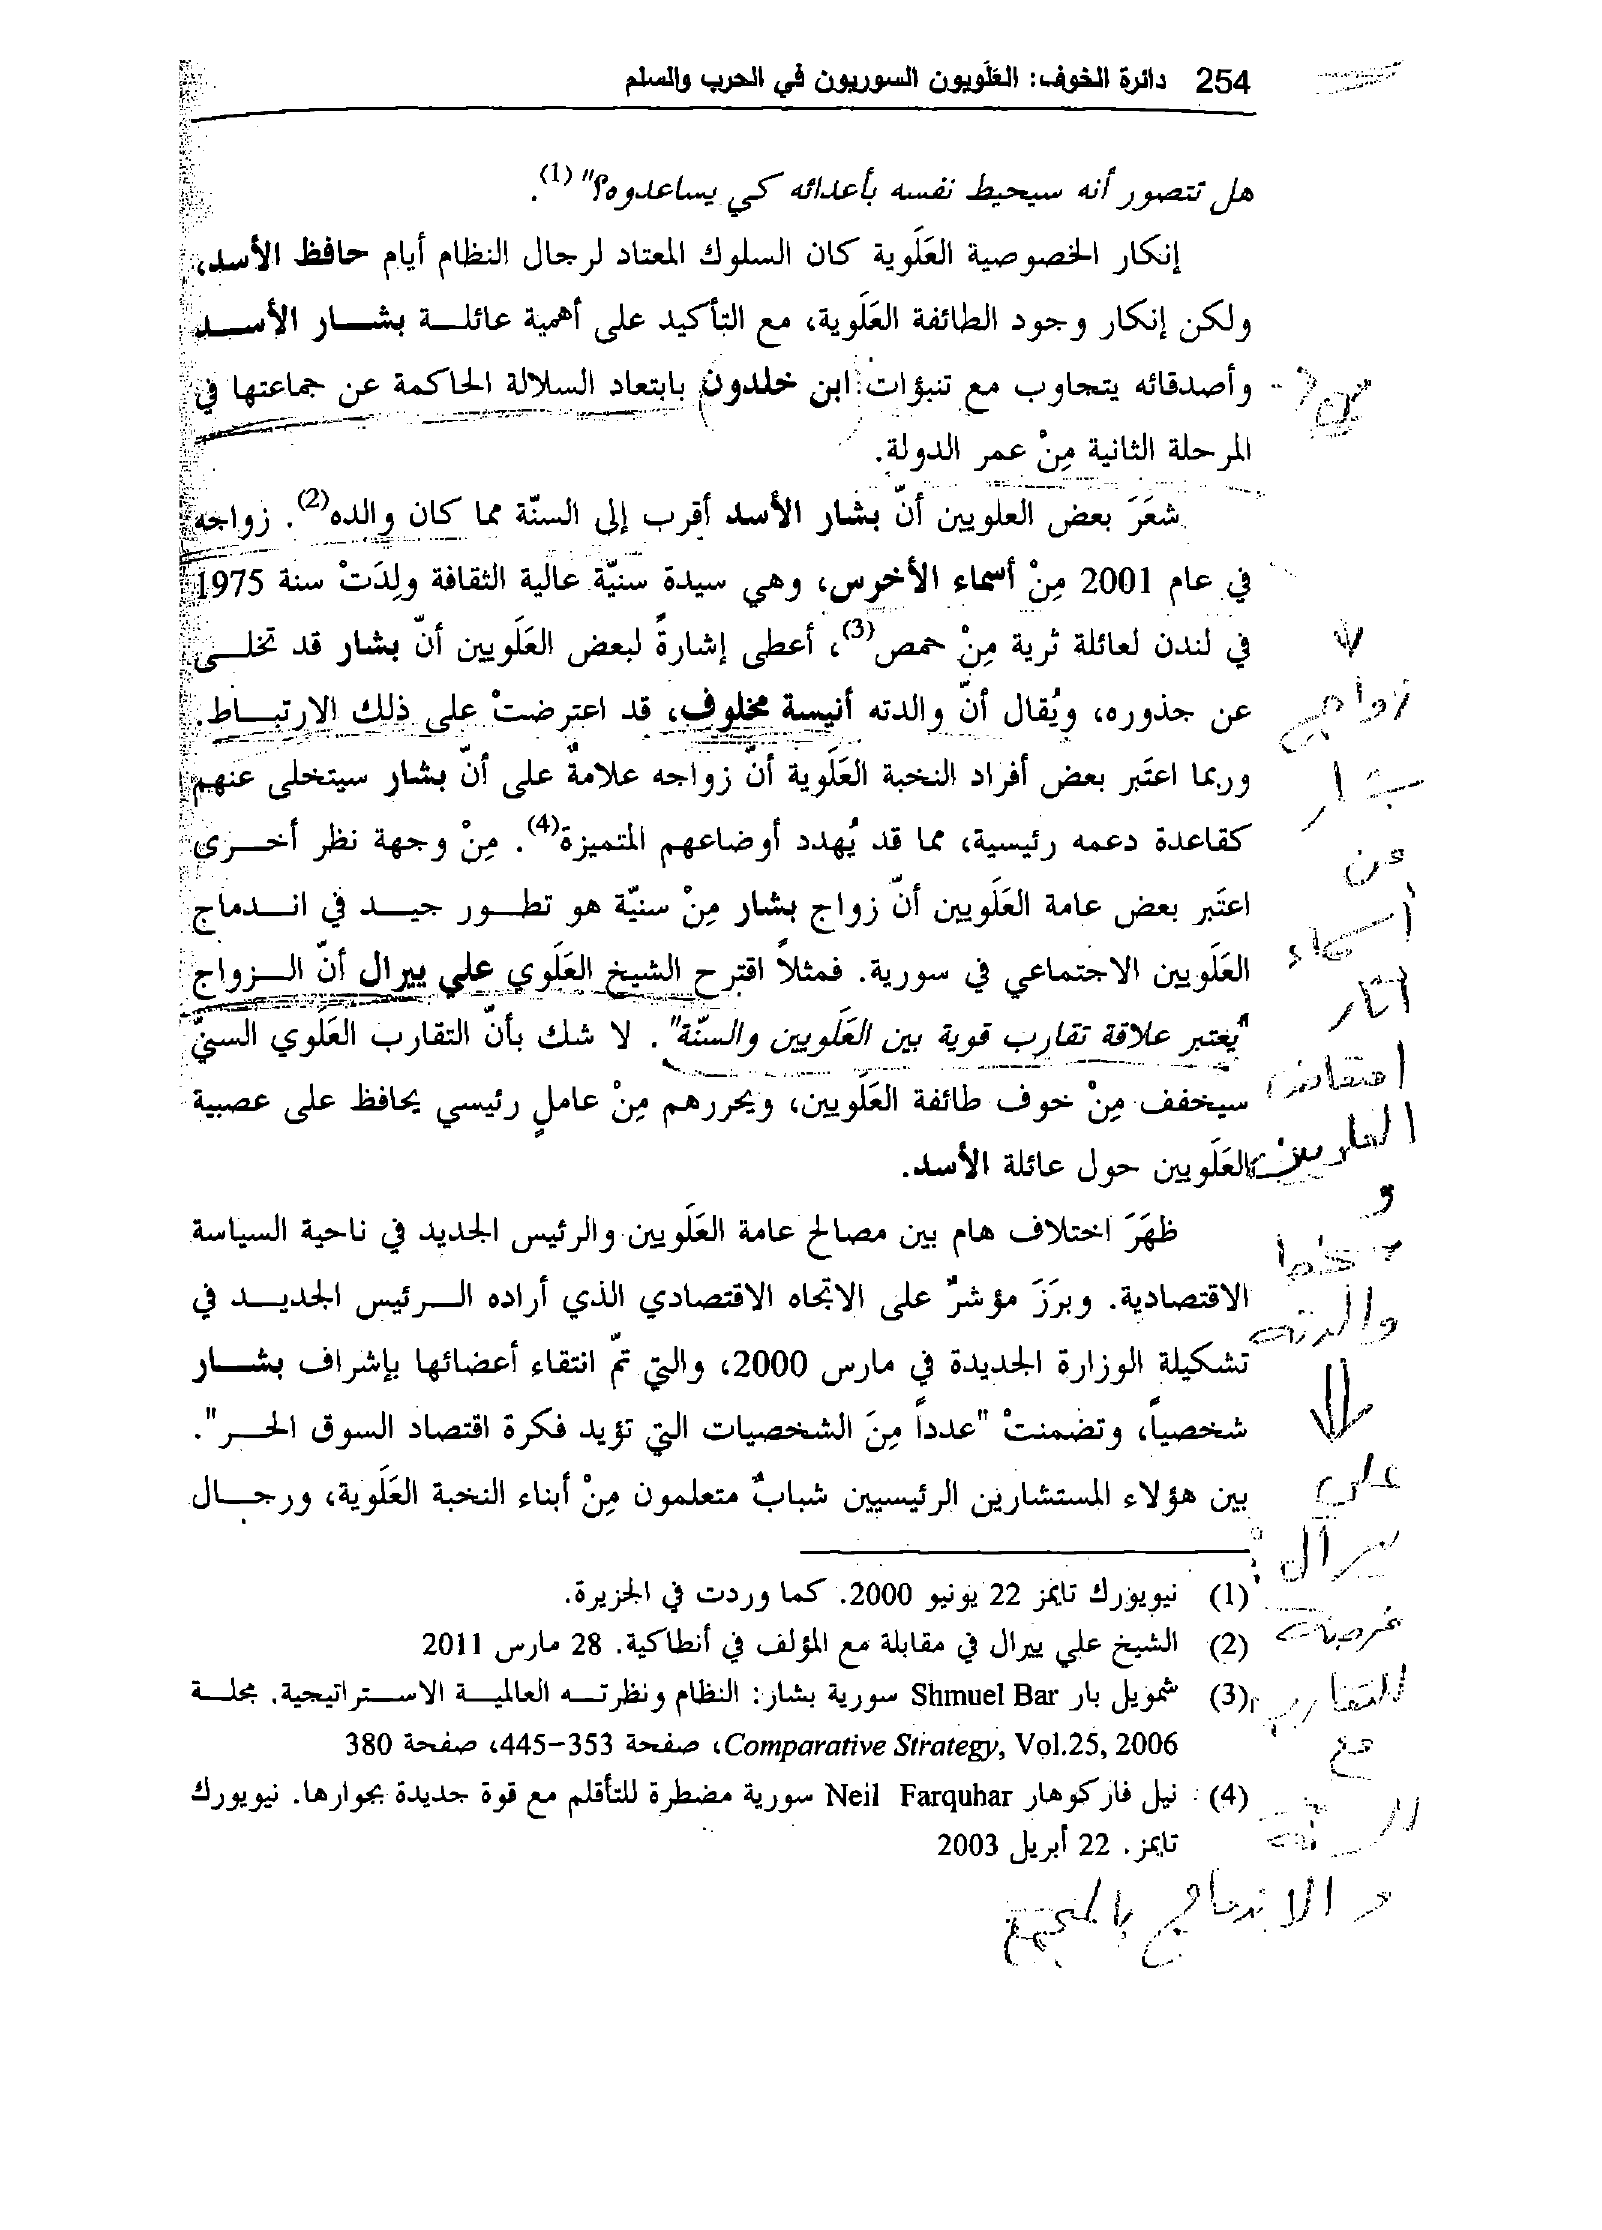 254 دائرة الخوف: العَلَويون السوريون في الحرب والسلم
هل تتصور أنه سيحيط نفسه بأعدائه كي يساعدوه؟" (1).
إنكار الخصوصية العَلَوية كان السلوك المعتاد لرجال النظام أيام حافظ الأسد،
ولكن إنكار وجود الطائفة العَلَوية، مع التأكيد على أهمية عائلـة بشـــار الأســـد
وأصدقائه يتجاوب مع تنبؤات ابن خلدون بابتعاد السلالة الحاكمة عن جماعتها في
المرحلة الثانية مِنْ عمر الدولة.
شعَرَ بعض العلويين أنّ بشار الأسد أقرب إلى السنّة مما كان والده(2). زواجه
في عام 2001 مِنْ أسماء الأخرس، وهي سيدة سنيّة عالية الثقافة ولِدَتْ سنة 1975
في لندن لعائلة ثرية مِنْ حمص(3)، أعطى إشارةً لبعض العَلَويين أنّ بشار قد تخلـــى
عن جذوره، ويُقال أنّ والدته أنيسة مخلوف، قد اعترضتْ على ذلك الارتبـــاط.
وربما اعتَبر بعض أفراد النخبة العَلَوية أنّ زواجه علامةٌ على أنّ بشار سيتخلى عنهم
كقاعدة دعمه رئيسية، مما قد يُهدد أوضاعهم المتميزة(4). مِنْ وجهة نظر أخـــرى
اعتَبر بعض عامة العَلَويين أنّ زواج بشار مِنْ سنيّة هو تطـــور جيـــد في انـــدماج
العَلَويين الاجتماعي في سورية. فمثلاً اقترح الشيخ العَلَوي علي ييرال أنّ الـــزواج
"يُعتبر علاقة تقارب قوية بين العَلَويين والسنّة". لا شك بأنّ التقارب العَلَوي السنيّ
سيخفف مِنْ خوف طائفة العَلَويين، ويحررهم مِنْ عاملٍ رئيسي يحافظ على عصبية
العَلَويين حول عائلة الأسد.
ظهَرَ اختلاف هام بين مصالح عامة العَلَويين والرئيس الجديد في ناحية السياسة
الاقتصادية. وبرَزَ مؤشرٌ على الاتجاه الاقتصادي الذي أراده الـــرئيس الجديـــد في
تشكيلة الوزارة الجديدة في مارس 2000، والتي تمّ انتقاء أعضائها بإشراف بشـــار
شخصياً، وتضمنتْ "عدداً مِنَ الشخصيات التي تؤيد فكرة اقتصاد السوق الحـــر".
بين هؤلاء المستشارين الرئيسيين شبابٌ متعلمون مِنْ أبناء النخبة العَلَوية، ورجـــال
(1) نيويورك تايمز 22 يونيو 2000. كما وردت في الجزيرة.
(2) الشيخ علي ييرال في مقابلة مع المؤلف في أنطاكية. 28 مارس 2011
(3) شموئيل بار Shmuel Bar سورية بشار: النظام ونظرتـــه العالميـــة الاســـتراتيجية. مجلـــة
Comparative Strategy, Vol.25, 2006، صفحة 353-445، صفحة 380
(4) نيل فاركوهار Neil Farquhar سورية مضطرة للتأقلم مع قوة جديدة بجوارها. نيويورك
تايمز. 22 أبريل 2003
زواج
بشار
من
أسماء
أثار
امتعاض
العلويين
و
سخط
والدته
علي
ييرال:
فرصة
للتقارب
مع
السنّة
و الاندماج بالمجتمع